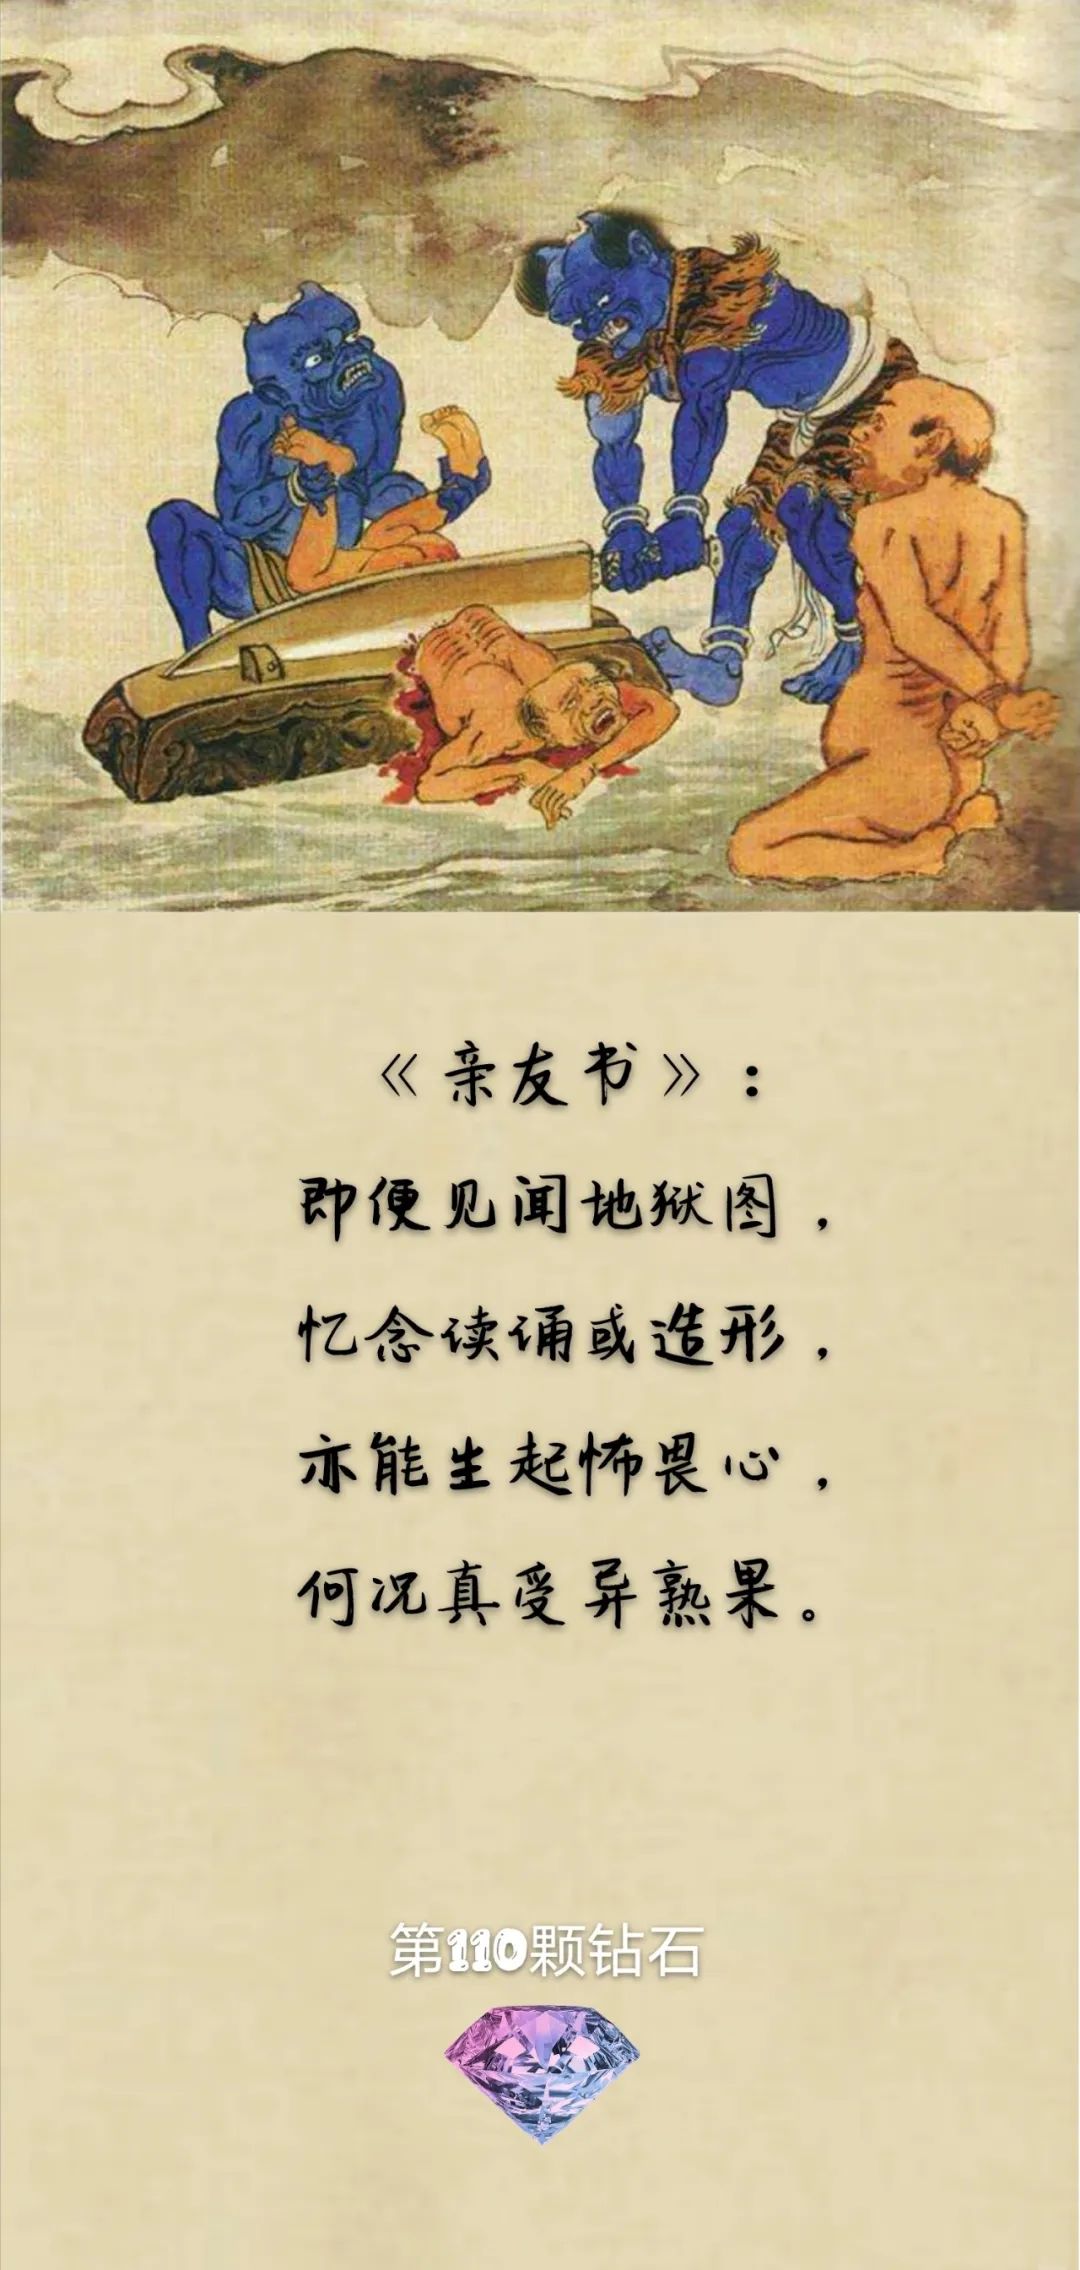 《亲友书》：
即便见闻地狱图，
忆念读诵或造形，
亦能生起怖畏心，
何况真受异熟果。
第110颗钻石